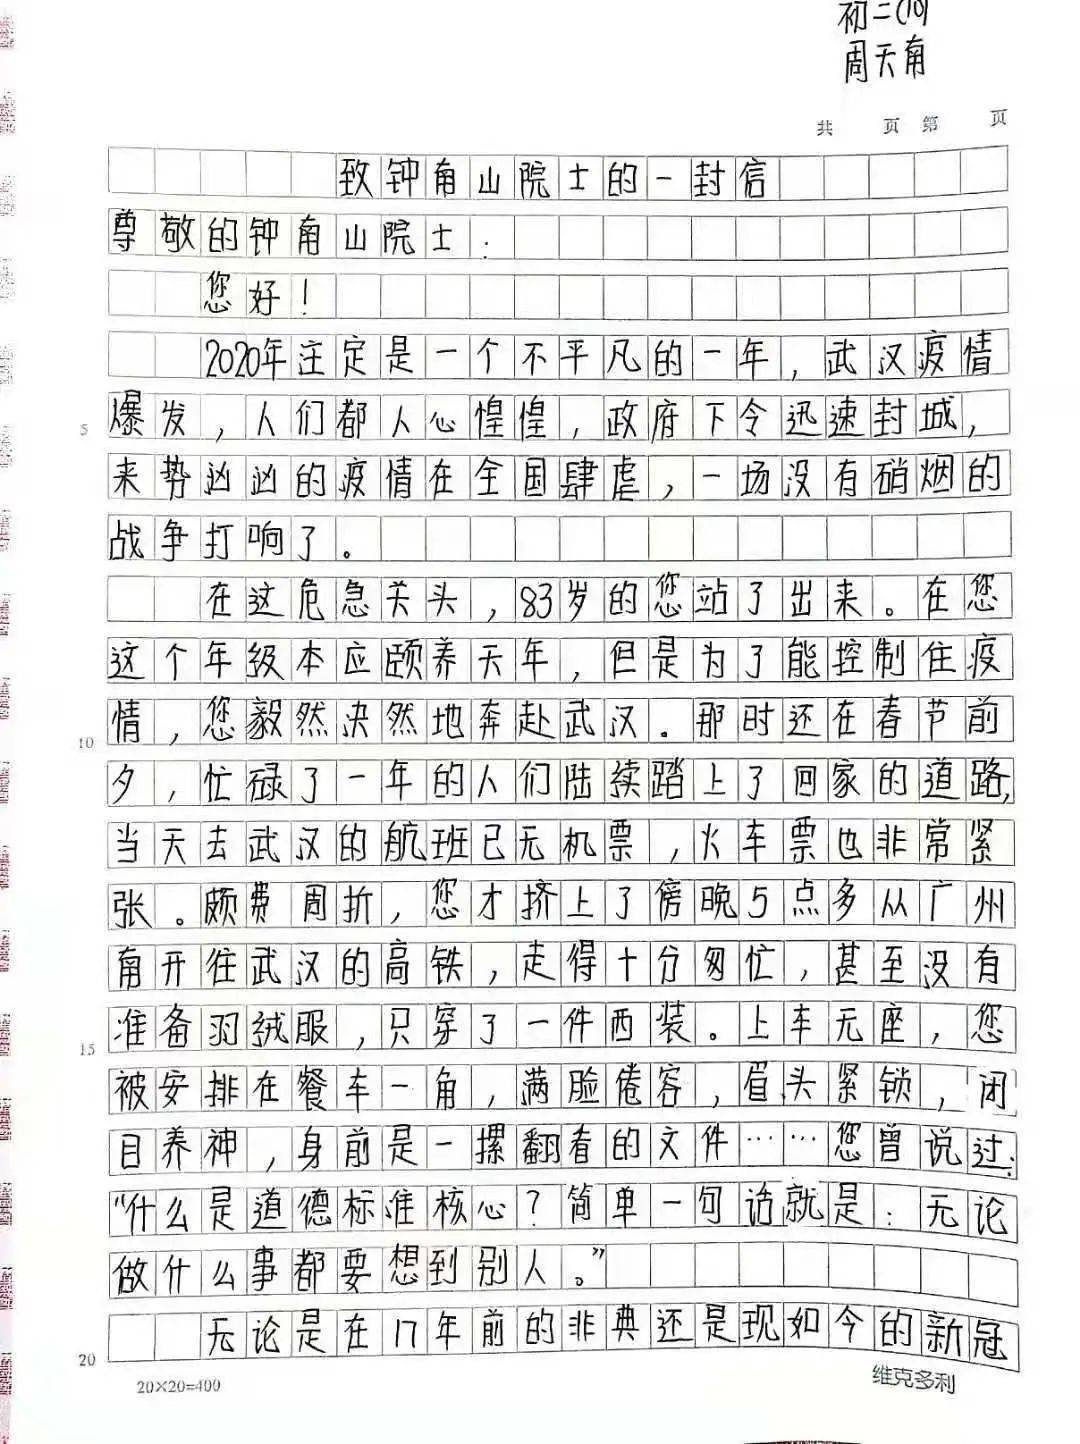 初二(10)
周天南
共 页 第 页
致钟南山院士的一封信
尊敬的钟南山院士:
您好!
2020年注定是一个不平凡的一年,武汉疫情
5 爆发,人们都人心惶惶,政府下令迅速封城,
来势汹汹的疫情在全国肆虐,一场没有硝烟的
战争打响了。
在这危急关头,83岁的您站了出来。在您
这个年级本应颐养天年,但是为了能控制住疫
10 情,您毅然决然地奔赴武汉。那时还在春节前
夕,忙碌了一年的人们陆续踏上了回家的道路,
当天去武汉的航班已无机票,火车票也非常紧
张。颇费周折,您才挤上了傍晚5点多从广州
南开往武汉的高铁,走得十分匆忙,甚至没有
15 准备羽绒服,只穿了一件西装。上车无座,您
被安排在餐车一角,满脸倦容,眉头紧锁,闭
目养神,身前是一摞翻看的文件……您曾说过:
“什么是道德标准核心?简单一句话就是:无论
做什么事都要想到别人。”
20 无论是在17年前的非典还是现如今的新冠
20×20=400 维克多利